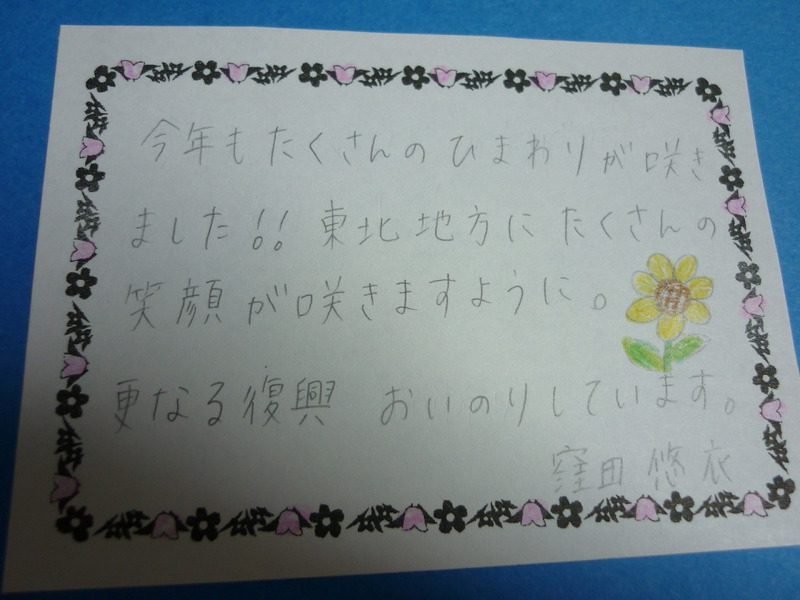 今年もたくさんのひまわりが咲き
ました!! 東北地方にたくさんの
笑顔が咲きますように。
更なる復興 おいのりしています。
窪田 悠衣